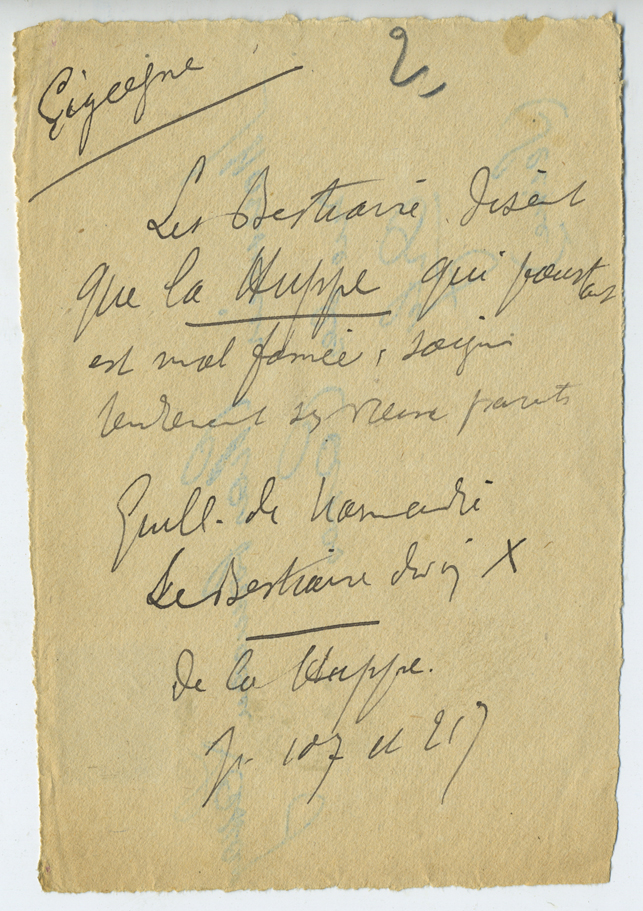 Cigogne
2
Les Bestiaire disent
que la Huppe qui pourtant
est mal famée, soigne
tendrement ses vieux parents
Guill. de Normandie
Le Bestiaire divin X
De la Huppe.
p. 107 et 217